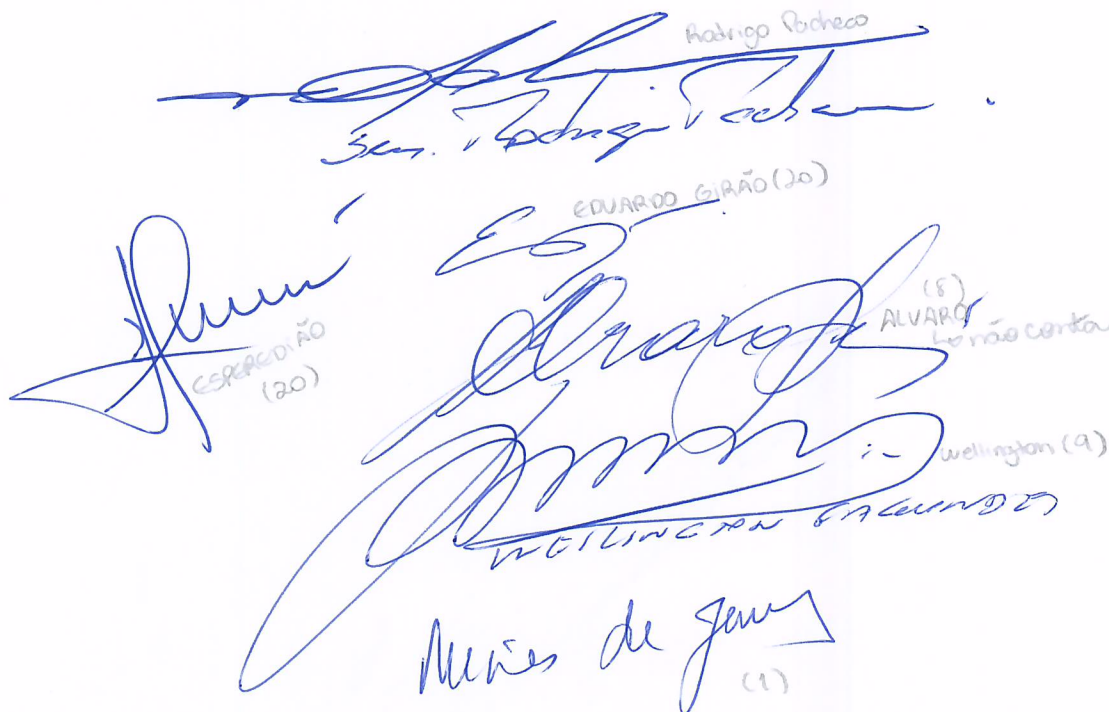 Rodrigo Pacheco
Sen. Rodrigo Pacheco
EDUARDO GIRÃO (20)
ESPEREDIÃO
(20)
(8)
ALVARO
↳ não conta
Wellington (9)
WELLINGTON FAGUNDES
de
(1)